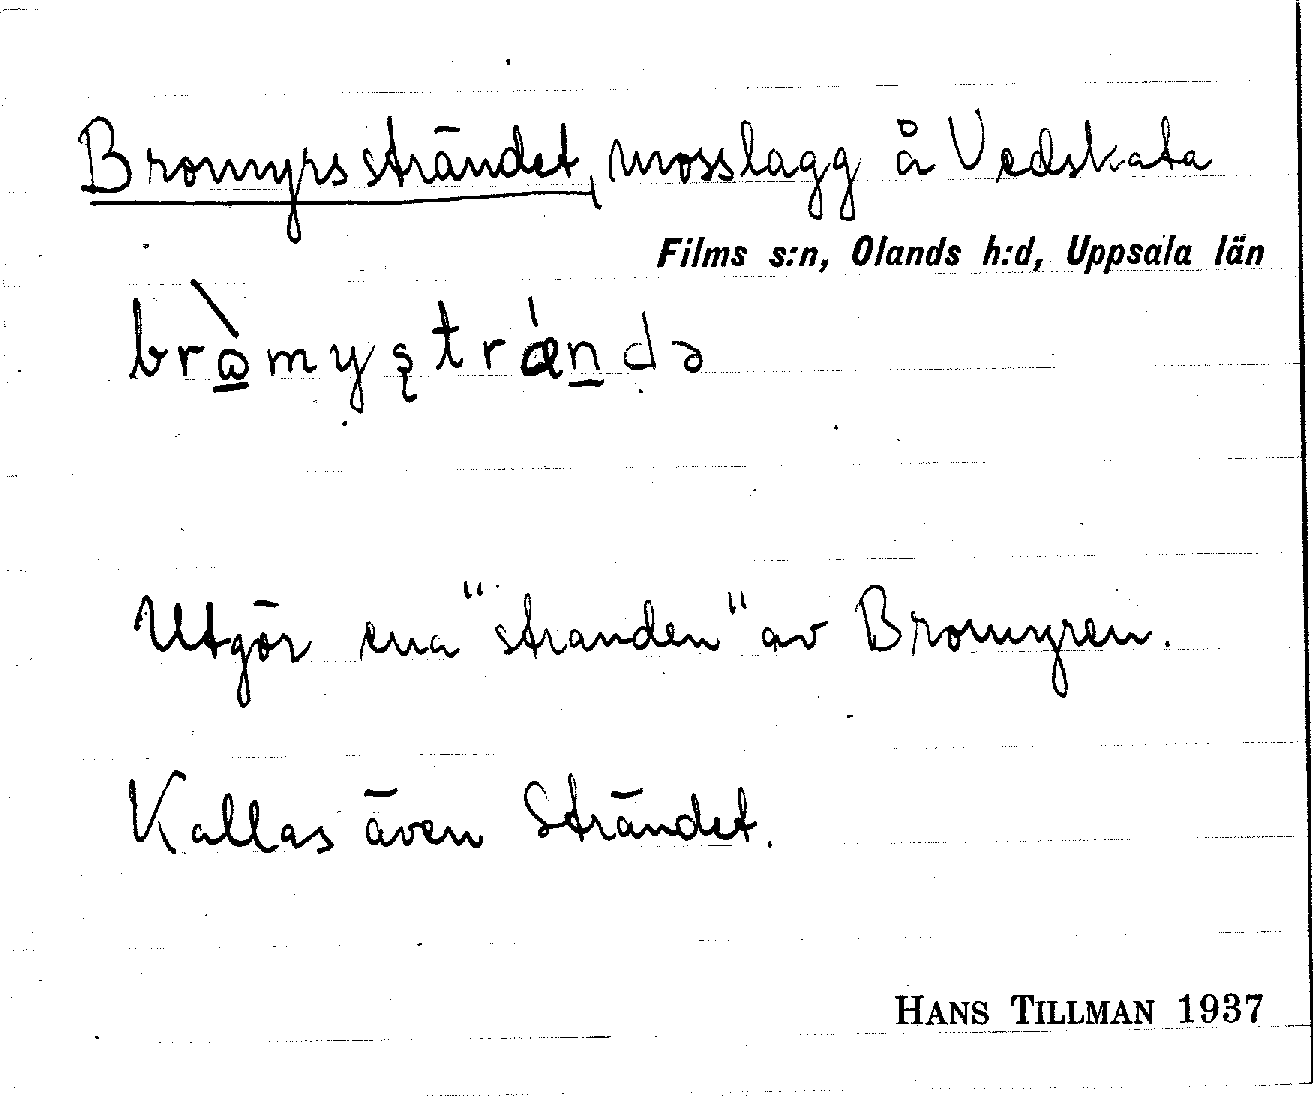 Bromyrssträndet, mosslagg å Vedskata
Films s:n, Olands h:d, Uppsala län
Utgör ena "stranden" av Bromyren.
Kallas även Strändet.
HANS TILLMAN 1937